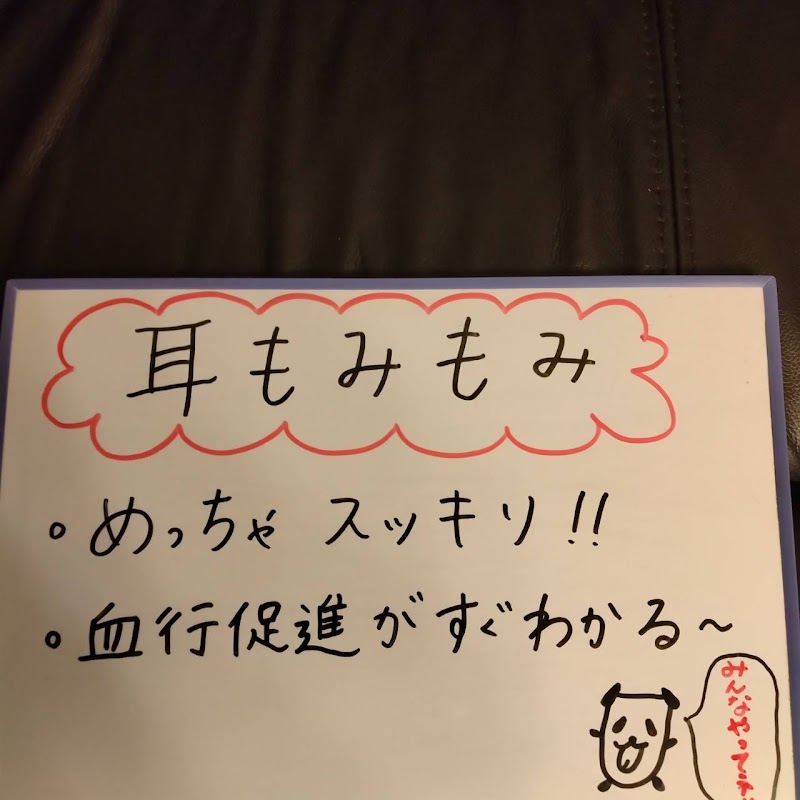 耳もみもみ
・めっちゃ スッキリ!!
・血行促進がすぐわかる~
みんなやって